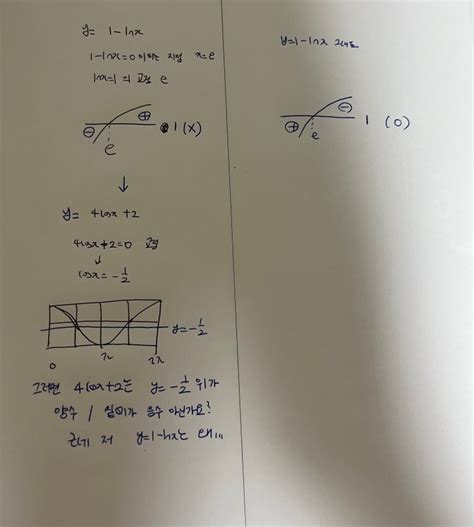 y= 1-lnx
1-lnx=0 이라는 지점 x=e
lnx=1 의 교점 e
⊖ ⊕ 1 (X)
e
↓
y= 4cosx+2
4cosx+2=0 교점
↓
cosx= -1/2
y=-1/2
0 π 2π
그러면 4cosx+2는 y= -1/2 위가
양수 / 밑이가 음수 아닌가요?
근데 저 y=1-lnx는 왜...
y=1-lnx 그래프
⊕ ⊖ 1 (O)
e